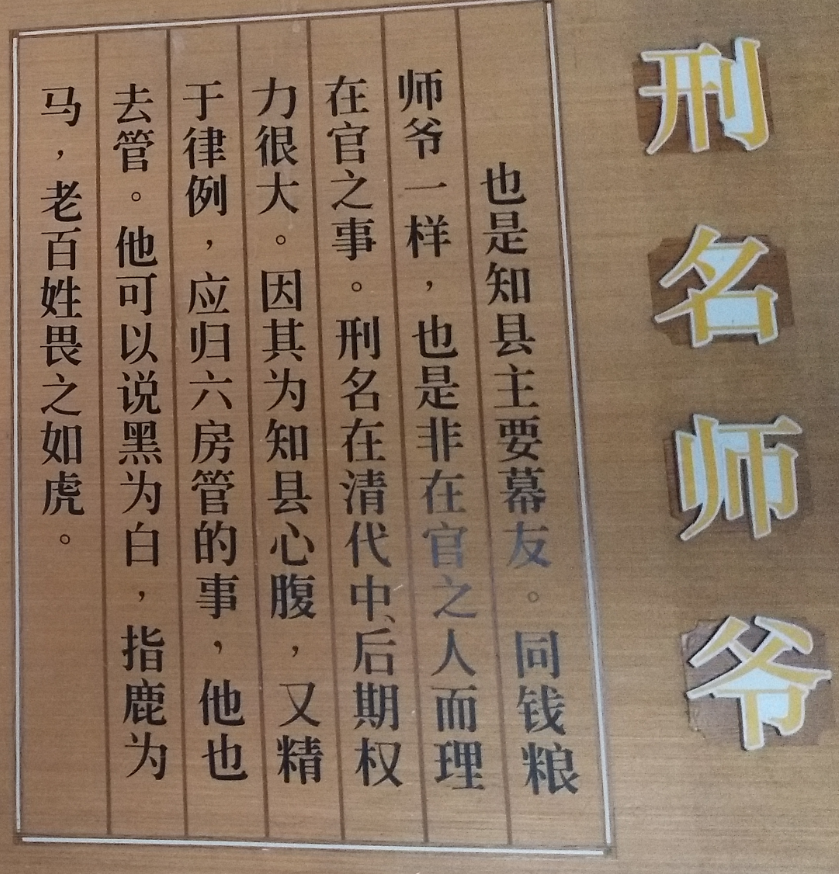 刑名师爷
也是知县主要幕友。同钱粮
师爷一样，也是非在官之人而理
在官之事。刑名在清代中、后期权
力很大。因其为知县心腹，又精
于律例，应归六房管的事，他也
去管。他可以说黑为白，指鹿为
马，老百姓畏之如虎。